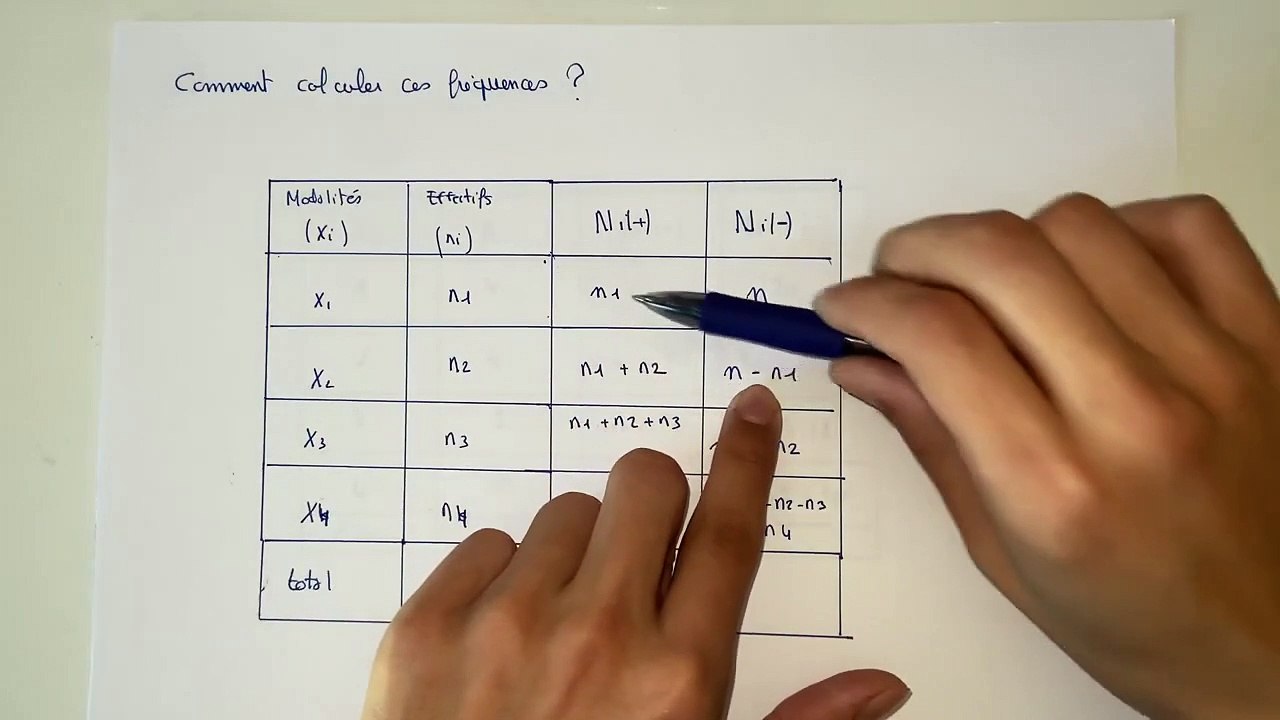 Comment calculer ces fréquences ?
Modalités (xi) Effectifs (ni) Ni(+) Ni(-)
x1 n1 n1 n
x2 n2 n1 + n2 n - n1
x3 n3 n1 + n2 + n3 n2
x4 n4 -n2-n3
n4
total